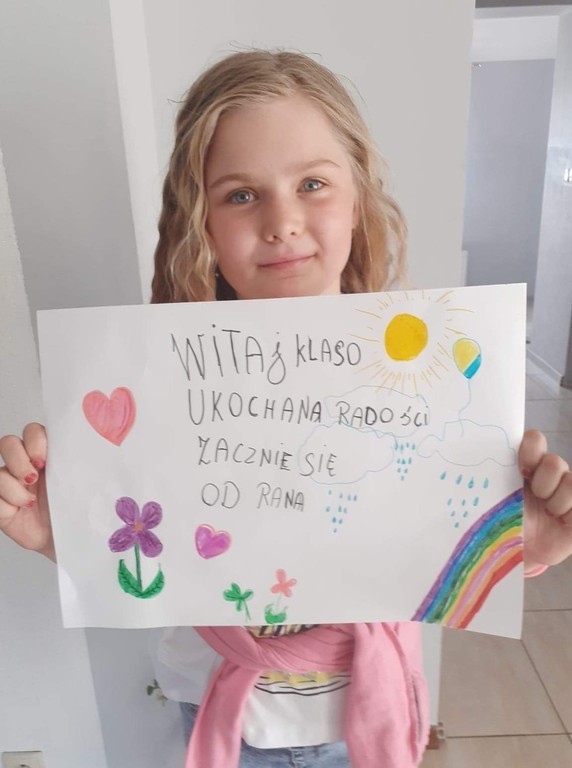 WiTAj KLASO
UKOCHANA RADOŚCi
ZACZNIE SIĘ
OD RANA